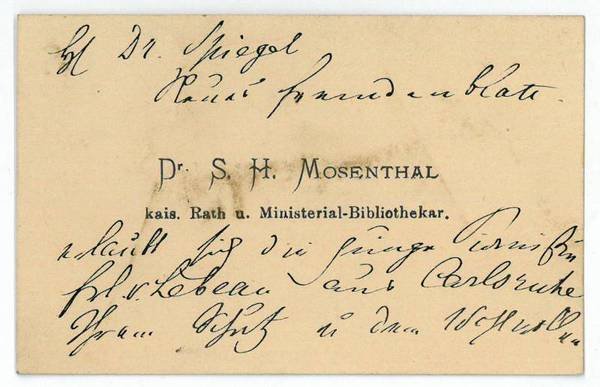 Dr. Spiegel
Neues Fremdenblatt.
Dr. S. H. Mosenthal
kais. Rath u. Ministerial-Bibliothekar.
erlaubt sich die junge Pianistin
Frl. v. Lebeau aus Carlsruhe
Ihrem Schutz u dem Wohlwollen